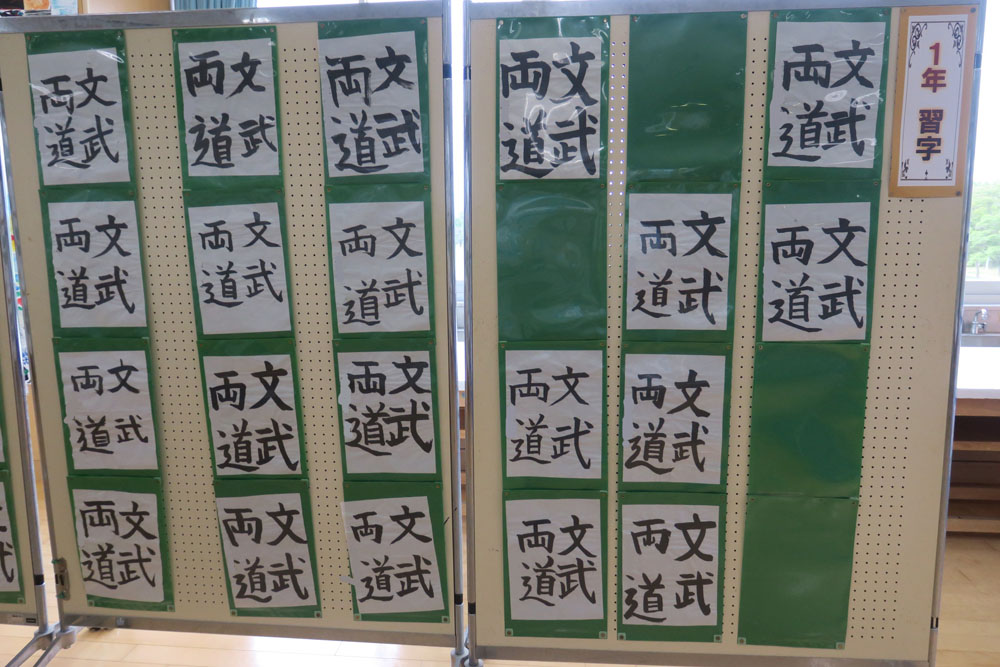 1年 習字
文武
両道
文武
両道
文武
両道
文武
両道
文武
両道
文武
両道
文武
両道
文武
両道
文武
両道
文武
両道
文武
両道
文武
両道
文武
両道
文武
両道
文武
両道
文武
両道
文武
両道
文武
両道
文武
両道
文武
両道